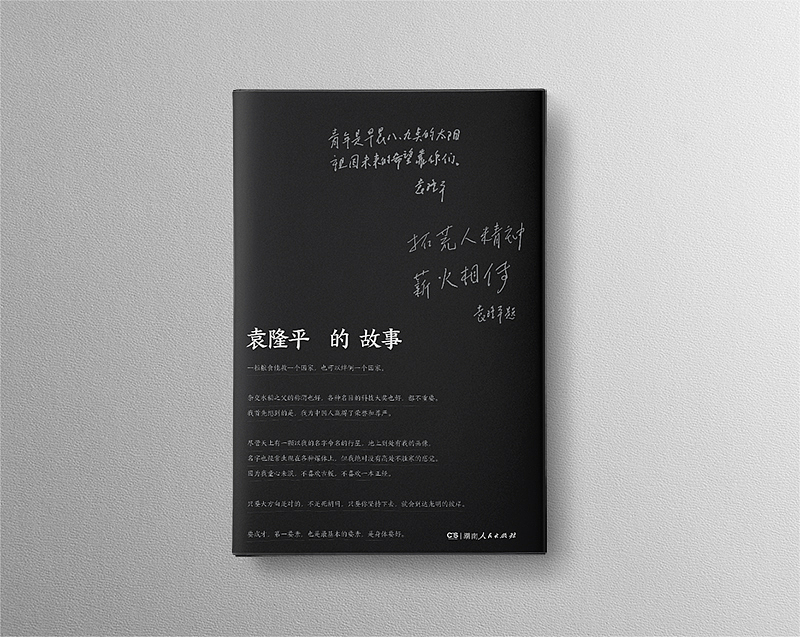 青年是早晨八、九点的太阳
祖国未来的希望靠你们。
袁隆平
拓荒人精神
薪火相传
袁隆平题
袁隆平 的 故事
一粒粮食能救一个国家，也可以绊倒一个国家。
杂交水稻之父的称谓也好，各种名目的科技大奖也好，都不重要。
我首先想到的是，我为中国人赢得了荣誉和尊严。
尽管天上有一颗以我的名字命名的行星，地上到处有我的画像，
名字也经常出现在各种媒体上，但我绝对没有高处不胜寒的感觉。
因为我童心未泯，不喜欢古板，不喜欢一本正经。
只要大方向是对的，不是死胡同，只要你坚持下去，就会到达光明的彼岸。
要成才，第一要素，也是最基本的要素，是身体要好。
CS 湖南人民出版社